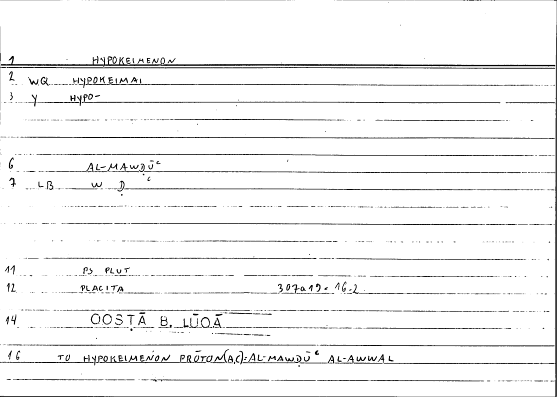 1 HYPOKEIMENON
2 WQ HYPOKEIMAI
3 Y HYPO-
6 AL-MAWḌŪʿ
7 LB W Ḍ ʿ
11 PS PLUT
12 PLACITA 307a19 = 16.2
14 QOSṬĀ B. LŪQĀ
16 TO HYPOKEIMENON PRŪTON(A,C)=AL-MAWḌŪʿ AL-AWWAL